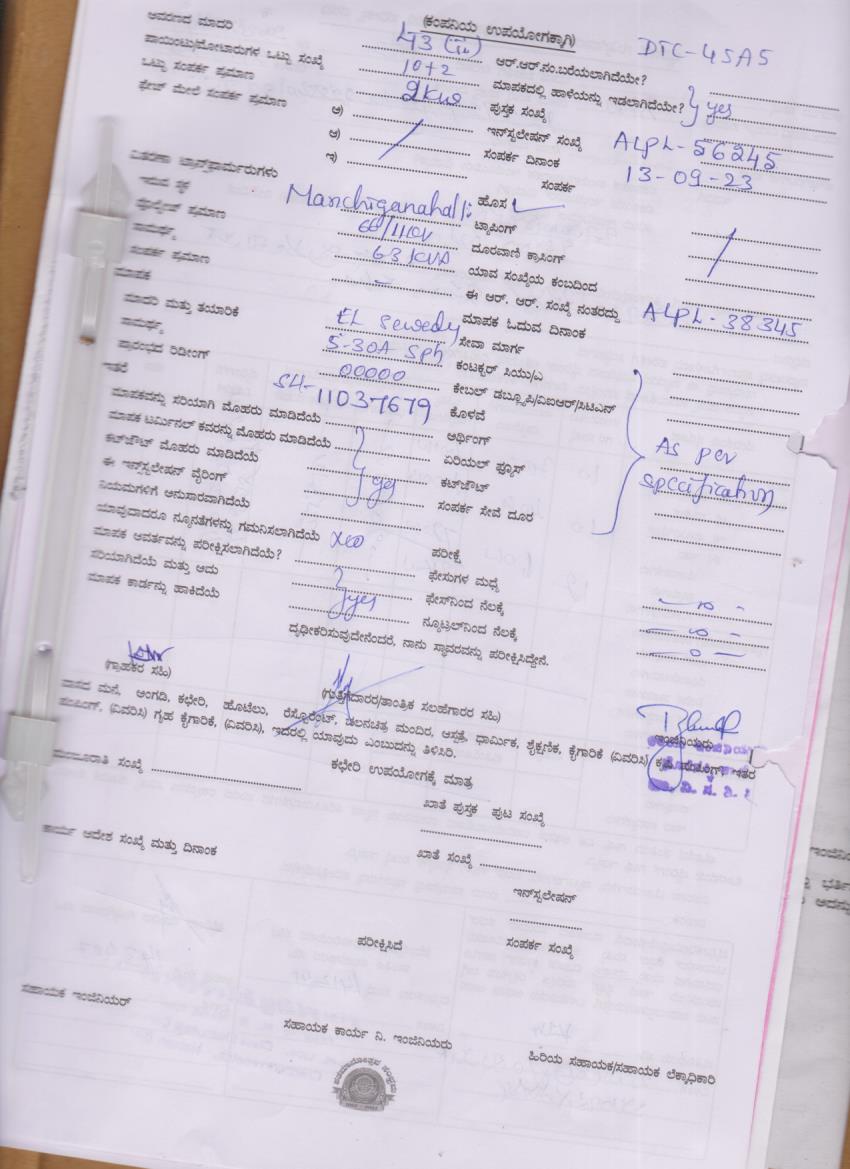 (ಕಂಪನಿಯ ಉಪಯೋಗಕ್ಕಾಗಿ)
ಆವರಣದ ಮಾದರಿ
DTC-45A5
43 (ii) ಆರ್.ಆರ್.ನಂ.ಬರೆಯಲಾಗಿದೆಯೇ?
ಪಾಯಿಂಟು/ಮೋಟಾರುಗಳ ಒಟ್ಟು ಸಂಖ್ಯೆ 10+2 ಮಾಪಕದಲ್ಲಿ ಹಾಳೆಯನ್ನು ಇಡಲಾಗಿದೆಯೇ? yes
ಒಟ್ಟು ಸಂಪರ್ಕ ಪ್ರಮಾಣ 2KW ಪುಸ್ತಕ ಸಂಖ್ಯೆ
ಫೇಜ್ ಮೇಲೆ ಸಂಪರ್ಕ ಪ್ರಮಾಣ ಅ) ಇನ್‌ಸ್ಟಲೇಷನ್ ಸಂಖ್ಯೆ ALPL-56245
ಆ) ಸಂಪರ್ಕ ದಿನಾಂಕ 13-09-23
ಇ) ಸಂಪರ್ಕ
ವಿತರಣಾ ಟ್ರಾನ್ಸ್‌ಫಾರ್ಮರುಗಳು
ಇರುವ ಸ್ಥಳ Manchiganahalli ಹೊಸ
ವೋಲ್ಟೇಜ್ ಪ್ರಮಾಣ ಟ್ಯಾಪಿಂಗ್
ಸಾಮರ್ಥ್ಯ 63 KVA ದೂರವಾಣಿ ಕ್ರಾಸಿಂಗ್
ಸಂಪರ್ಕ ಪ್ರಮಾಣ ಯಾವ ಸಂಖ್ಯೆಯ ಕಂಬದಿಂದ
ಮಾಪಕ ಈ ಆರ್. ಆರ್. ಸಂಖ್ಯೆ ನಂತರದ್ದು ALPL-38345
ಮಾದರಿ ಮತ್ತು ತಯಾರಿಕೆ EL Sewedy ಮಾಪಕ ಓದುವ ದಿನಾಂಕ
ಸಾಮರ್ಥ್ಯ 5-30A Sph ಸೇವಾ ಮಾರ್ಗ
ಪ್ರಾರಂಭದ ರಿಡಿಂಗ್ 00000 ಕಂಟಕ್ಟರ್ ಸಿಯು/ಎ
ಇತರೆ 11037679 ಕೇಬಲ್ ಡಬ್ಲ್ಯೂಪಿ/ವಿಐಆರ್/ಸಿಟಿಎನ್
ಮಾಪಕವನ್ನು ಸರಿಯಾಗಿ ಮೊಹರು ಮಾಡಿದೆಯೆ ಕೊಳವೆ
ಮಾಪಕ ಟರ್ಮಿನಲ್ ಕವರನ್ನು ಮೊಹರು ಮಾಡಿದೆಯೆ ಅರ್ಥಿಂಗ್ As per
ಕಟ್‌ಔಟ್ ಮೊಹರು ಮಾಡಿದೆಯೆ yes ಏರಿಯಲ್ ಫ್ಯೂಸ್ specification
ಈ ಇನ್‌ಸ್ಟಲೇಷನ್ ವೈರಿಂಗ್ ಕಟ್‌ಔಟ್
ನಿಯಮಗಳಿಗೆ ಅನುಸಾರವಾಗಿದೆಯೆ ಸಂಪರ್ಕ ಸೇವೆ ದೂರ
ಯಾವುದಾದರೂ ನ್ಯೂನತೆಗಳನ್ನು ಗಮನಿಸಲಾಗಿದೆಯೆ
ಮಾಪಕ ಆವರ್ತವನ್ನು ಪರೀಕ್ಷಿಸಲಾಗಿದೆಯೆ? ಪರೀಕ್ಷೆ
ಸರಿಯಾಗಿದೆಯೆ ಮತ್ತು ಅದು ಫೇಸುಗಳ ಮಧ್ಯೆ
ಮಾಪಕ ಕಾರ್ಡನ್ನು ಹಾಕಿದೆಯೆ yes ಫೇಸ್‌ನಿಂದ ನೆಲಕ್ಕೆ
ನ್ಯೂಟ್ರಲ್‌ನಿಂದ ನೆಲಕ್ಕೆ
ದೃಢೀಕರಿಸುವುದೇನೆಂದರೆ, ನಾನು ಸ್ಥಾವರವನ್ನು ಪರೀಕ್ಷಿಸಿದ್ದೇನೆ.
(ಗ್ರಾಹಕರ ಸಹಿ)
(ಗುತ್ತಿಗೆದಾರರ/ತಾಂತ್ರಿಕ ಸಲಹೆಗಾರರ ಸಹಿ)
ಇಂಜಿನಿಯರು
ವಾಸದ ಮನೆ, ಅಂಗಡಿ, ಕಛೇರಿ, ಹೊಟೆಲು, ರೆಸ್ಟೋರೆಂಟ್, ಚಲನಚಿತ್ರ ಮಂದಿರ, ಆಸ್ಪತ್ರೆ, ಧಾರ್ಮಿಕ, ಶೈಕ್ಷಣಿಕ, ಕೈಗಾರಿಕೆ (ವಿವರಿಸಿ) ಕೃಷಿ ಪಂಪಿಂಗ್, ಇತರ
ಪಂಪಿಂಗ್, (ವಿವರಿಸಿ) ಗೃಹ ಕೈಗಾರಿಕೆ, (ವಿವರಿಸಿ), ಇದರಲ್ಲಿ ಯಾವುದು ಎಂಬುದನ್ನು ತಿಳಿಸಿರಿ.
ಕಛೇರಿ ಉಪಯೋಗಕ್ಕೆ ಮಾತ್ರ
ಮಂಜೂರಾತಿ ಸಂಖ್ಯೆ
ಖಾತೆ ಪುಸ್ತಕ ಪುಟ ಸಂಖ್ಯೆ
ಕಾರ್ಯ ಆದೇಶ ಸಂಖ್ಯೆ ಮತ್ತು ದಿನಾಂಕ
ಖಾತೆ ಸಂಖ್ಯೆ
ಇನ್‌ಸ್ಟಲೇಷನ್
ಪರೀಕ್ಷಿಸಿದೆ
ಸಂಪರ್ಕ ಸಂಖ್ಯೆ
ಸಹಾಯಕ ಇಂಜಿನಿಯರ್
ಸಹಾಯಕ ಕಾರ್ಯ ನಿ. ಇಂಜಿನಿಯರು
ಹಿರಿಯ ಸಹಾಯಕ/ಸಹಾಯಕ ಲೆಕ್ಕಾಧಿಕಾರಿ